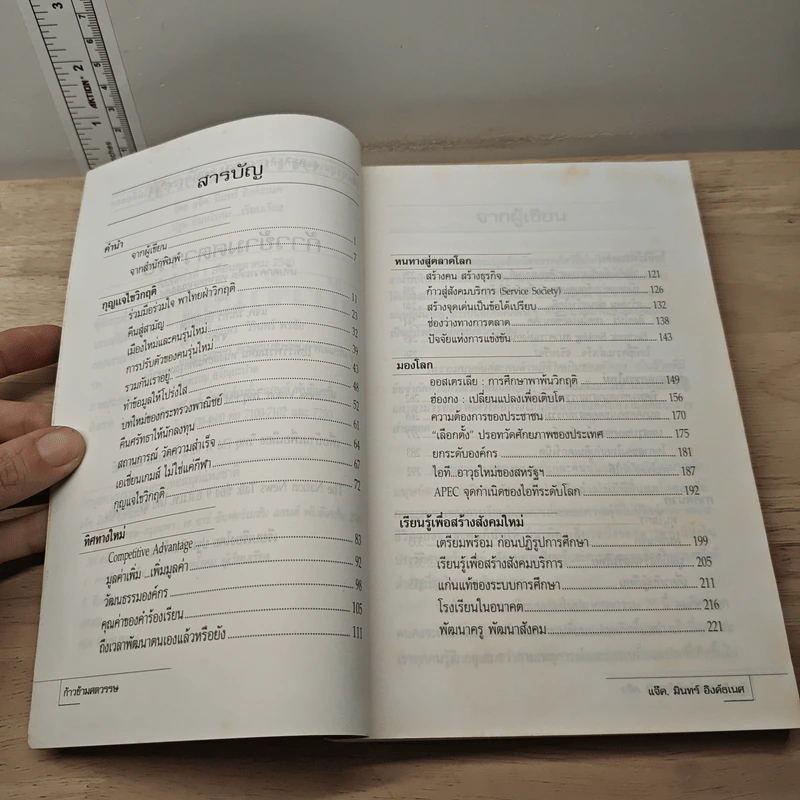 สารบัญ
คำนำ
จากผู้เขียน 1
จากสำนักพิมพ์ 7
กุญแจไขวิกฤติ
ร่วมมือร่วมใจ พาไทยฝ่าวิกฤติ 11
คืนสู่สามัญ 23
เมืองใหม่และคนรุ่นใหม่ 32
การปรับตัวของคนรุ่นใหม่ 39
รวมกันเราอยู่ 43
ทำข้อมูลให้โปร่งใส 48
บทใหม่ของกระทรวงพาณิชย์ 52
คืนศรัทธาให้นักลงทุน 61
สถานการณ์ วัดความสำเร็จ 64
เอเชี่ยนเกมส์ ไม่ใช่แค่กีฬา 67
กุญแจไขวิกฤติ 72
ทิศทางใหม่
Competitive Advantage 83
มูลค่าเพิ่ม ...เพิ่มมูลค่า 92
วัฒนธรรมองค์กร 98
คุณค่าของคำร้องเรียน 105
ถึงเวลาพัฒนาตนเองแล้วหรือยัง 111
ก้าวข้ามศตวรรษ
หนทางสู่ตลาดโลก
สร้างคน สร้างธุรกิจ 121
ก้าวสู่สังคมบริการ (Service Society) 126
สร้างจุดเด่นเป็นข้อได้เปรียบ 132
ช่องว่างทางการตลาด 138
ปัจจัยแห่งการแข่งขัน 143
มองโลก
ออสเตรเลีย : การศึกษาพาพ้นวิกฤติ 149
ฮ่องกง : เปลี่ยนแปลงเพื่อเติบโต 156
ความต้องการของประชาชน 170
"เลือกตั้ง" ปรอทวัดศักยภาพของประเทศ 175
ยกระดับองค์กร 181
ไอที...อาวุธใหม่ของสหรัฐฯ 187
APEC จุดกำเนิดของไอทีระดับโลก 192
เรียนรู้เพื่อสร้างสังคมใหม่
เตรียมพร้อม ก่อนปฏิรูปการศึกษา 199
เรียนรู้เพื่อสร้างสังคมบริการ 205
แก่นแท้ของระบบการศึกษา 211
โรงเรียนในอนาคต 216
พัฒนาครู พัฒนาสังคม 221
แจ๊ค. มินทร์ อิงค์ธเนศ